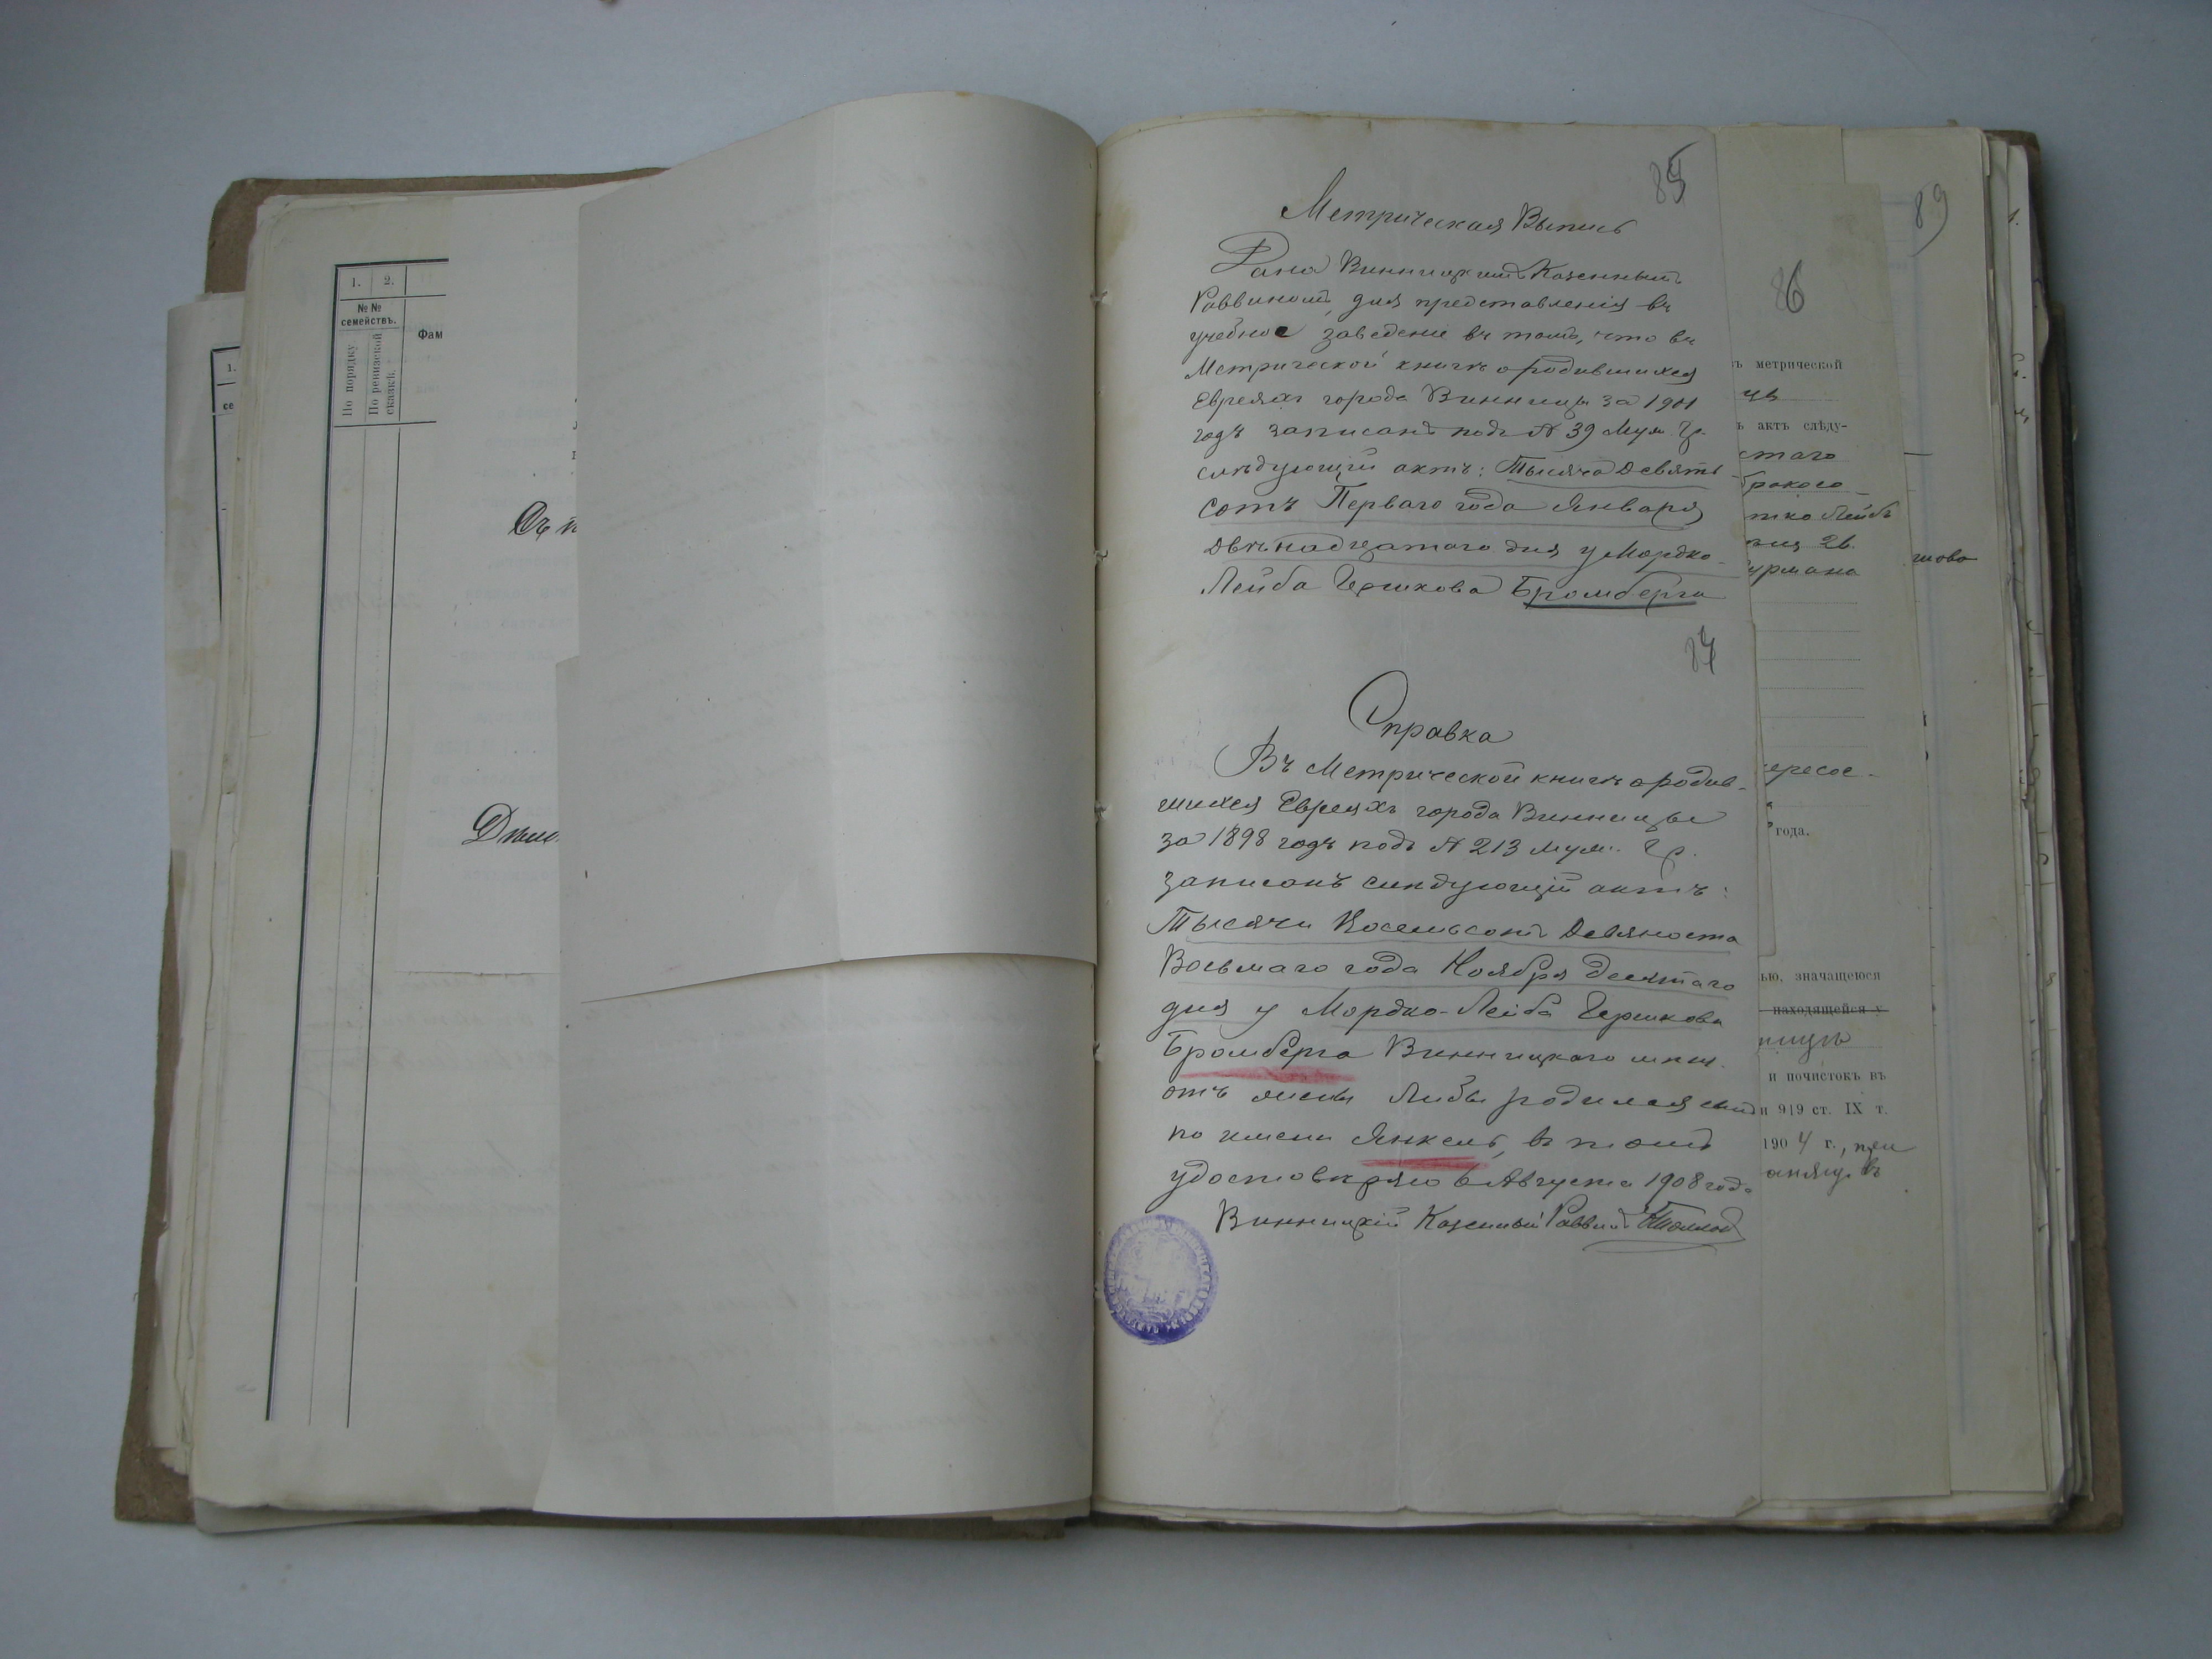 1.
се
1. 2.
№№
семействъ.
По порядку
По ревизской
сказкѣ.
Фам
Съ п
85
Метрическая Выпись
Дана Винницкимъ Казеннымъ
Раввиномъ, для представленія въ
учебное заведеніе въ томъ, что въ
Метрической книгѣ о родившихся
Евреяхъ города Винницы за 1901
годъ записанъ подъ № 39 муж. гр.
слѣдующій актъ: Тысяча Девять
сотъ Перваго года Января
двѣнадцатаго дня у Мордко-
Лейба Гершкова Бромберга
87
Справка
Въ Метрической книгѣ о родив-
шихся Евреяхъ города Винницы
за 1898 годъ подъ № 213 муж. гр.
записанъ слѣдующій актъ:
Тысячи Восемьсотъ Девяноста
Восьмаго года Ноября десятаго
дня у Мордко-Лейба Гершкова
Бромберга Винницкаго мѣщ.
отъ жены Либы родился сынъ
по имени Янкель, въ томъ
удостовѣряю 6 Августа 1908 года
Винницкій Казенный Раввинъ
86
ъ метрической
цѣ
ъ актъ слѣду-
стаго
тко Лейбъ
2в.
урмана
года.
ью, значащеюся
находящейся у
ницѣ
и почистокъ въ
и 919 ст. IX т.
1904 г., при
въ
89
шова